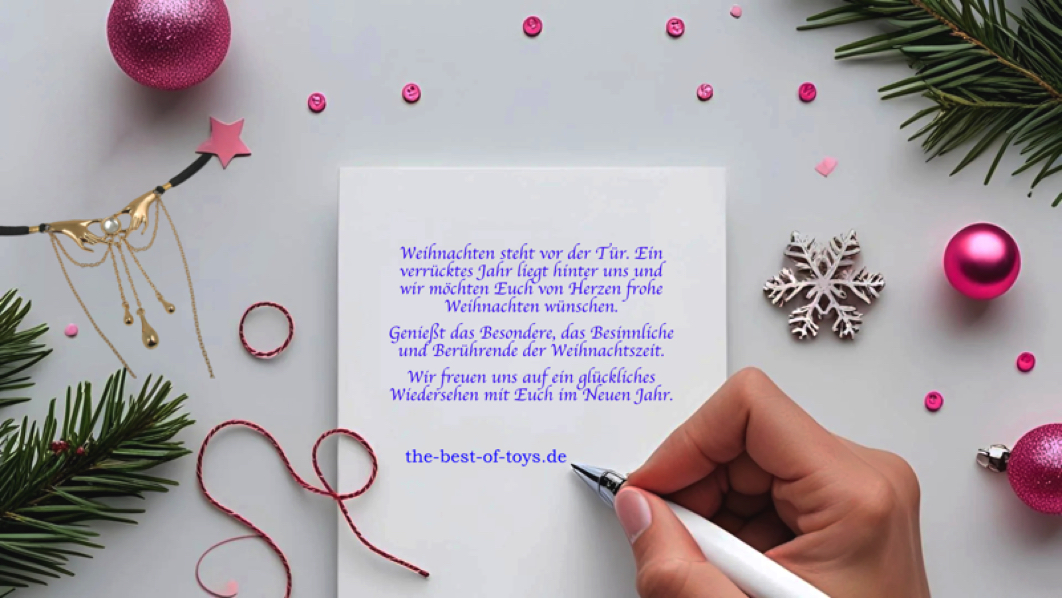 Weihnachten steht vor der Tür. Ein
verrücktes Jahr liegt hinter uns und
wir möchten Euch von Herzen frohe
Weihnachten wünschen.
Genießt das Besondere, das Besinnliche
und Berührende der Weihnachtszeit.
Wir freuen uns auf ein glückliches
Wiedersehen mit Euch im Neuen Jahr.
the-best-of-toys.de